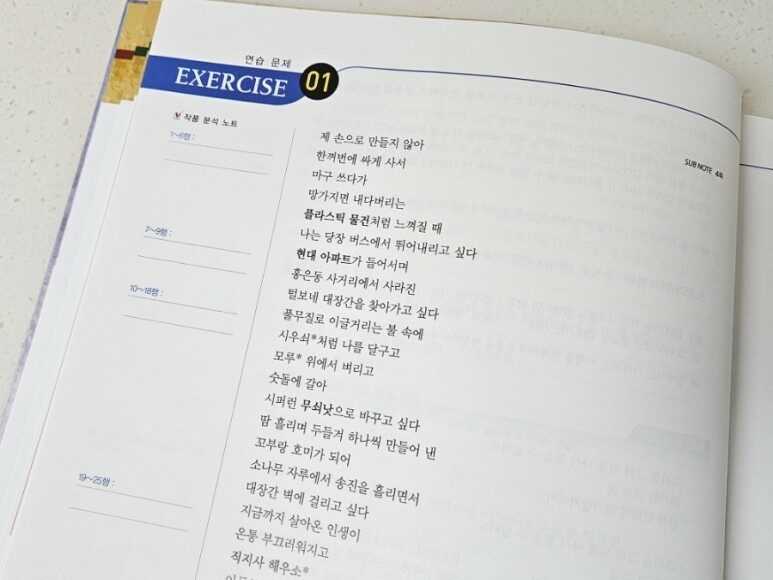 연습 문제
EXERCISE 01
작품 분석 노트
SUB NOTE 4쪽
1~6행 :
제 손으로 만들지 않아
한꺼번에 싸게 사서
마구 쓰다가
망가지면 내다버리는
플라스틱 물건처럼 느껴질 때
나는 당장 버스에서 뛰어내리고 싶다
7~9행 :
현대 아파트가 들어서며
홍은동 사거리에서 사라진
털보네 대장간을 찾아가고 싶다
10~18행 :
풀무질로 이글거리는 불 속에
시우쇠*처럼 나를 달구고
모루* 위에서 벼리고
숫돌에 갈아
시퍼런 무쇠낫으로 바꾸고 싶다
땀 흘리며 두들겨 하나씩 만들어 낸
꼬부랑 호미가 되어
소나무 자루에서 송진을 흘리면서
대장간 벽에 걸리고 싶다
19~25행 :
지금까지 살아온 인생이
온통 부끄러워지고
직지사 해우소*